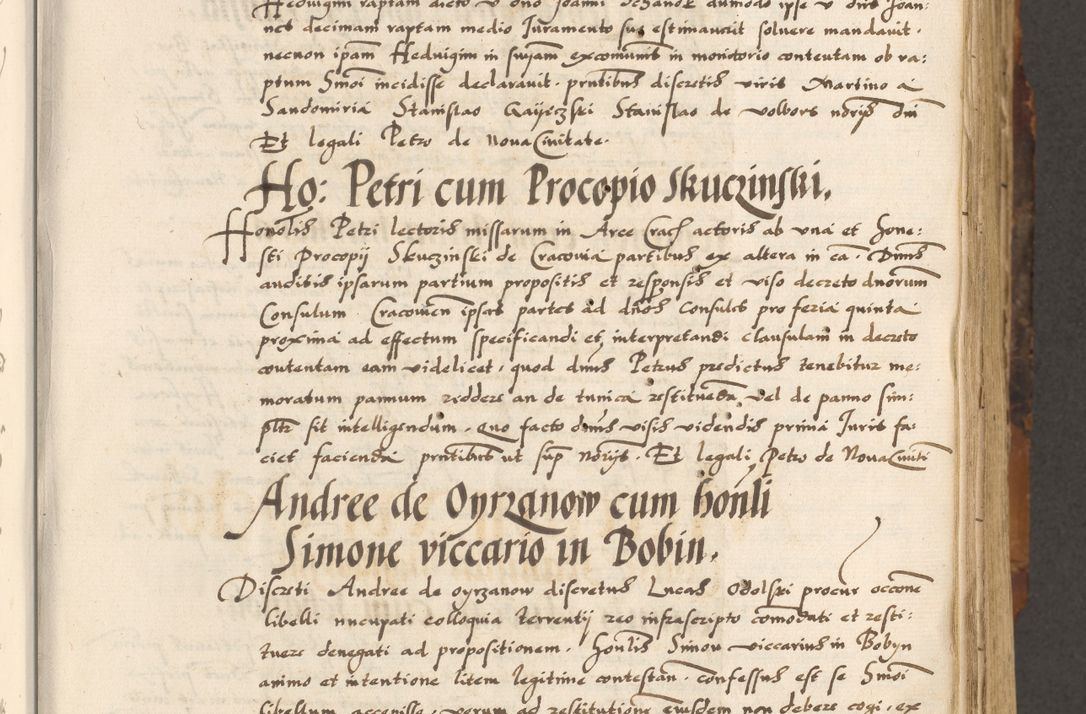 Hedvigim raptam dicto v dno Joanni
nes decimam raptam medio Juramento suo estimaverit solvere mandavit.
necnon ipam Hedvigim in suiam excomunis in monitorio contentam ob ra:
ptum Smoi incidisse declaravit. pntibus discretis viris Martino a
Sandomiria Stanislao Stanislao de volbors norijs dni
Et legali Petro de Nova Civitate.
Ho: Petri cum Procopio Skuczinski.
Honolis Petri lectoris missarum in Arce Crach actoris ab una et Hone:
sti Procopij Skuczinski de Cracovia partibus ex altera in ca. Dnus
auditis ipsarum partium propositis et responsis et viso decreto dnorum
Consulum Cracovien ipsas partes ad dnos Consules pro feria quinta
proxima ad effectum specificandi et interpretandi clausulam in decreto
contentam eam videlicet. quod dnus Petrus predictus tenebitur me:
moratum pannum reddere an de tunica restituenda vel de panno sim:
pltr sit intelligendum. Quo facto dnus visis videndis prima Juris fa:
ciet facienda pntibus ut sup norijs. Et legali Petro de Nova Civit
Andree de Oyrzanow cum honli
Simone viccario in Bobin.
Discreti Andree de oyrzanow discretus Lucas Opolski procur occone
libelli nucupati colloquia terrentij reo infrascripto comodati et resti:
tuere denegati ad propositionem. honlis Simon viccarius in Bobyn
animo et intentione litem legitime contestan. confessus est se Smoi
libellum accepisse. verum ad restitutione eiusdem non debere cogi. ex